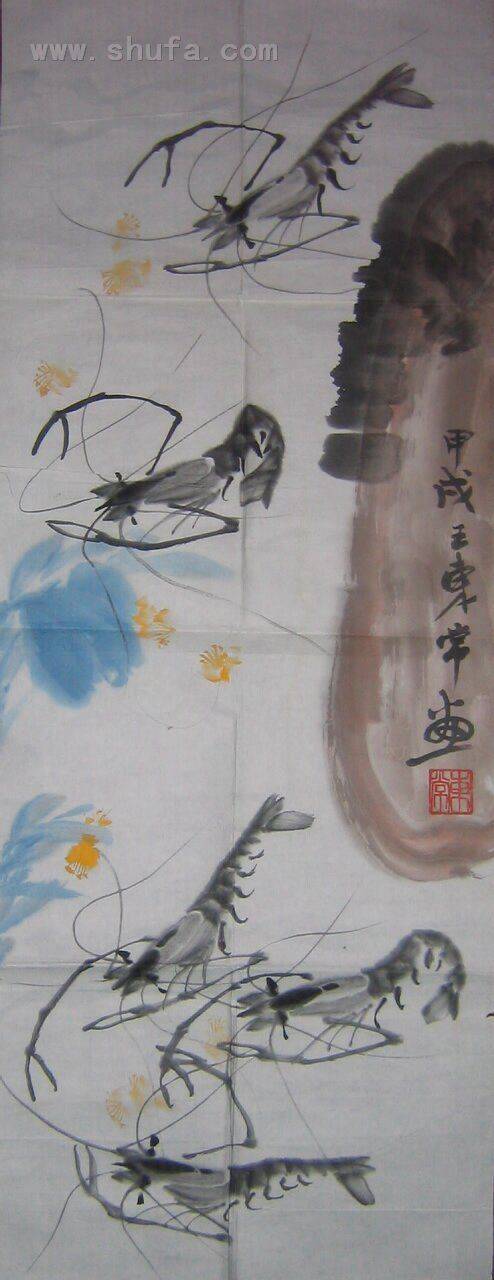 www.shufa.com
甲戌王東常畫
東常